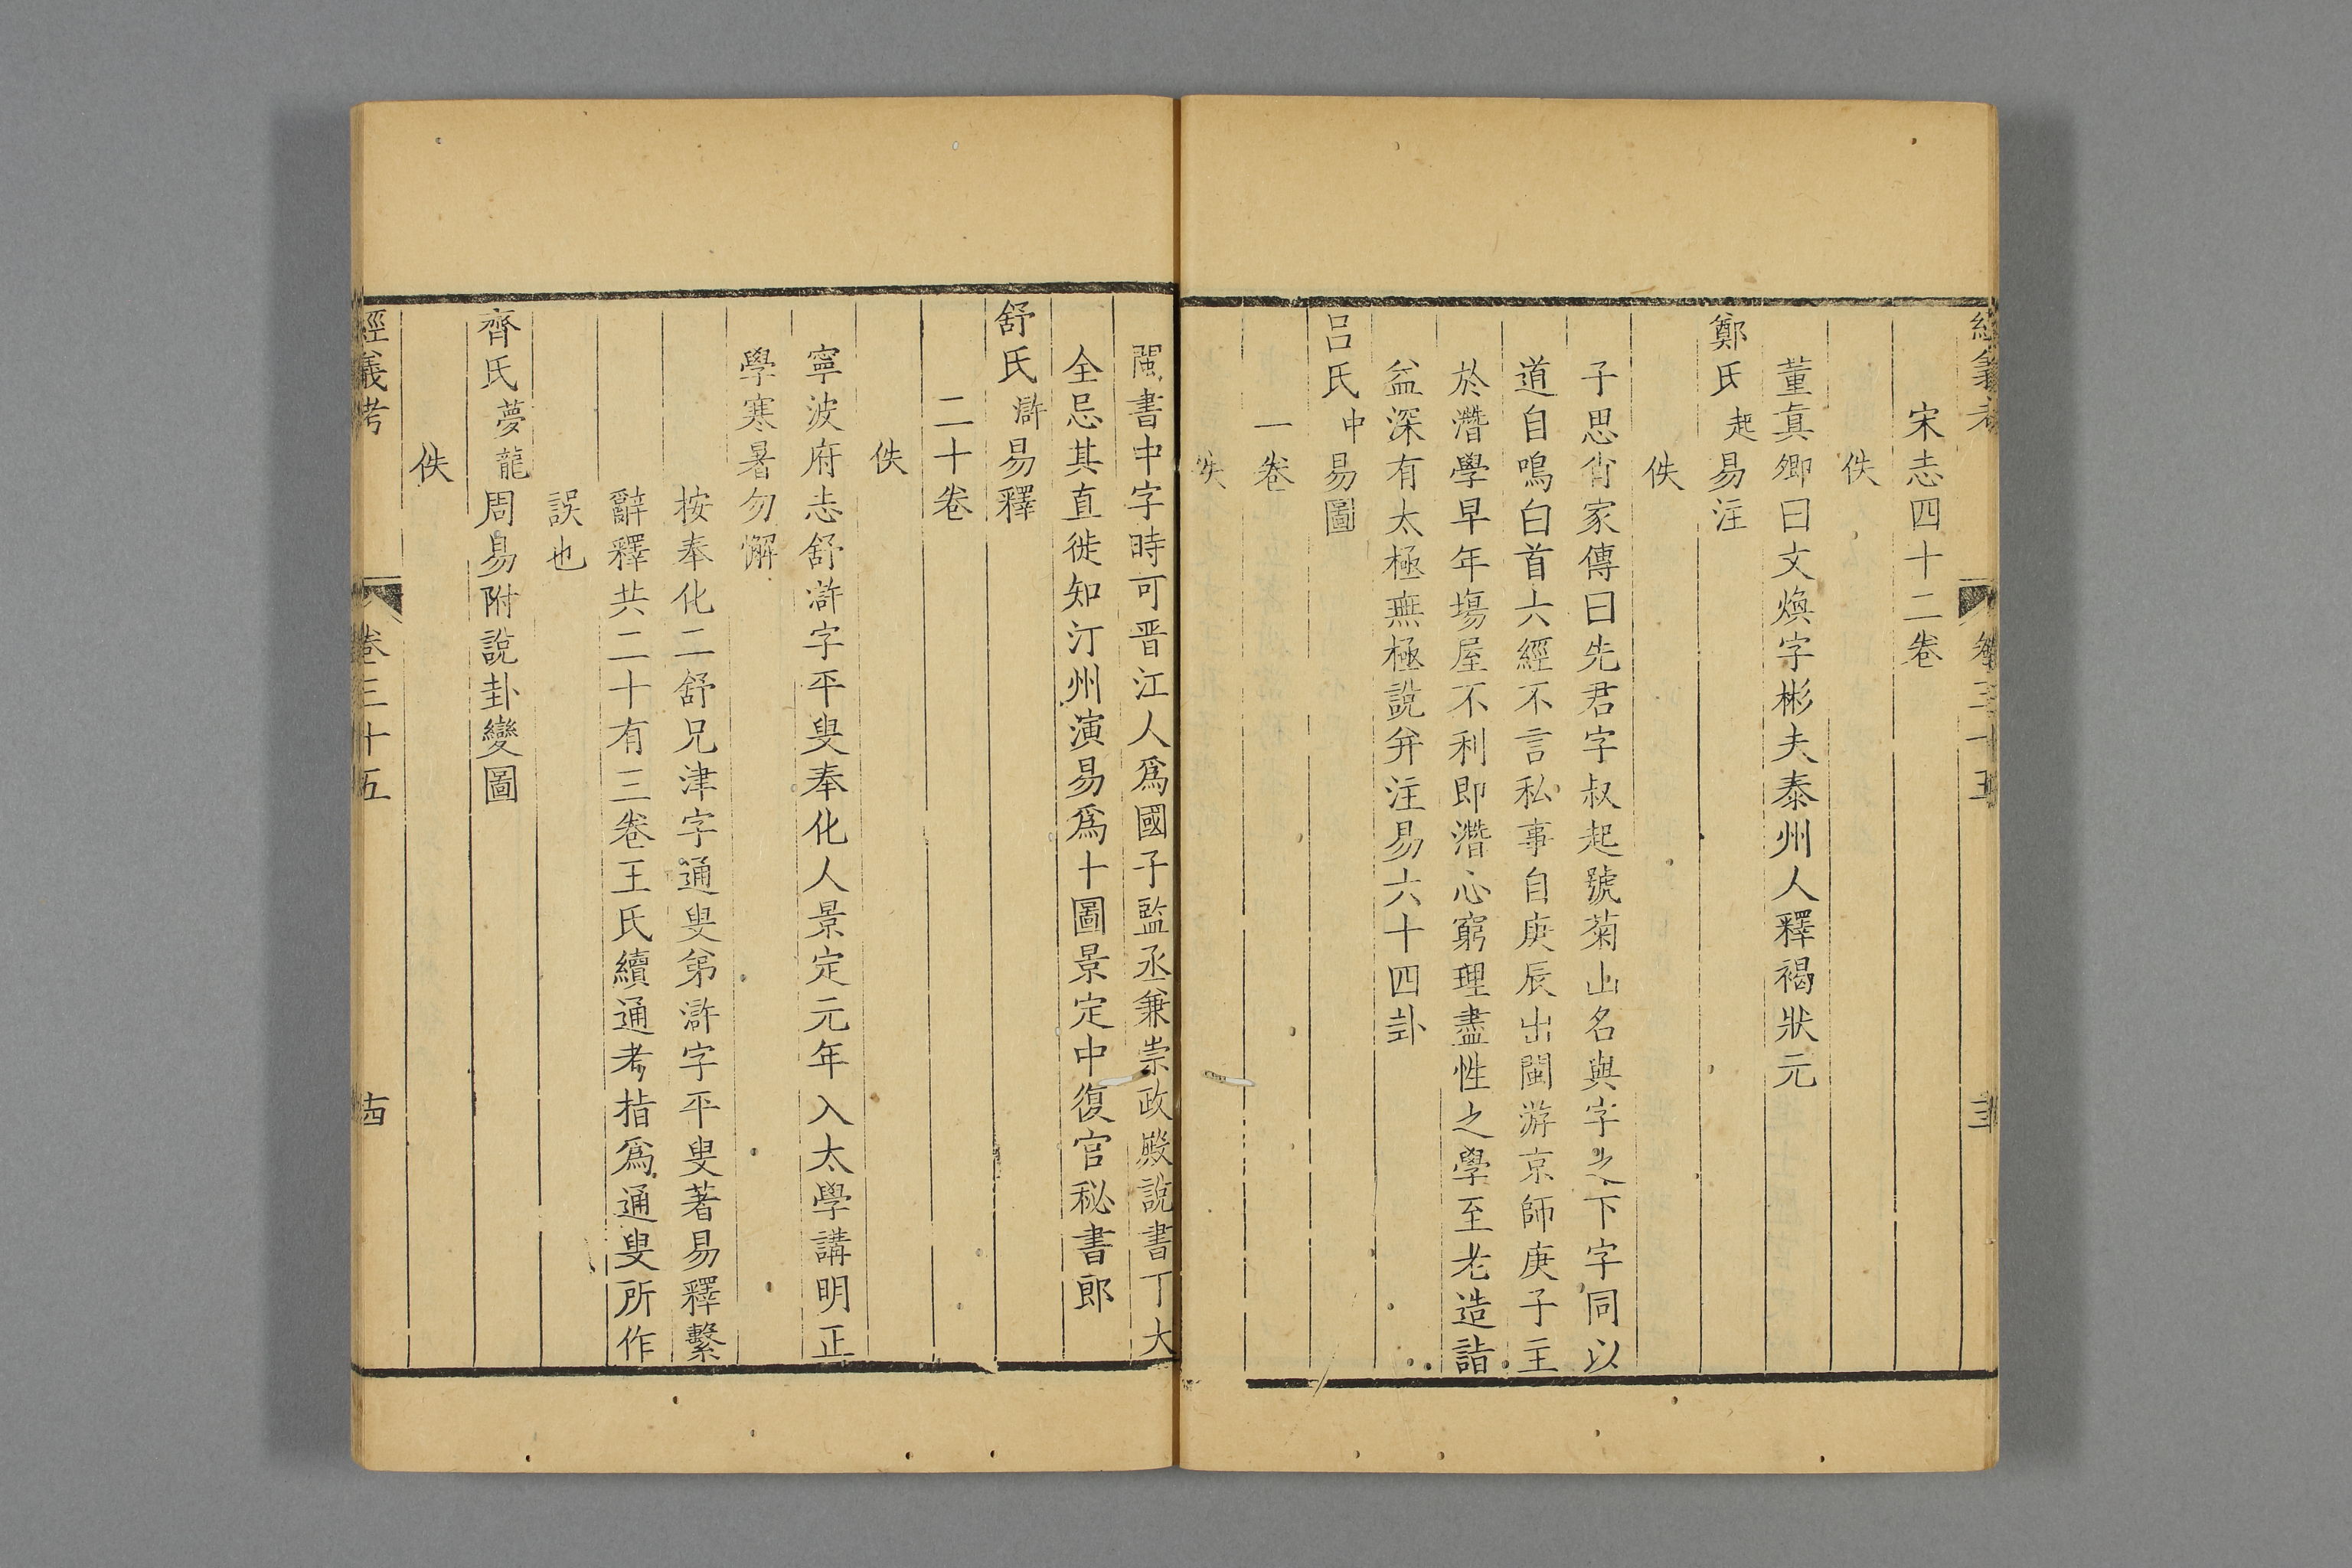 經義考 卷三十五 圭
宋志四十二卷
佚
董真卿曰文煥字彬夫泰州人釋褐狀元
鄭氏起易注
佚
子思肖家傳曰先君字叔起號菊山名與字之下字同以
道自鳴白首六經不言私事自庚辰出閩游京師庚子主
於濳學早年塲屋不利即濳心窮理盡性之學至老造詣
益深有太極無極說并注易六十四卦
呂氏中易圖
一卷
佚
閩書中字時可晋江人爲國子監丞兼崇政殿說書丁大
全忌其直徙知汀州演易爲十圖景定中復官秘書郎
舒氏滸易釋
二十卷
佚
寧波府志舒滸字平叟奉化人景定元年入太學講明正
學寒暑勿懈
按奉化二舒兄津字通叟弟滸字平叟著易釋繫
辭釋共二十有三卷王氏續通考指爲通叟所作
誤也
齊氏夢龍周易附說卦變圖
佚
經義考 卷三十五 十四